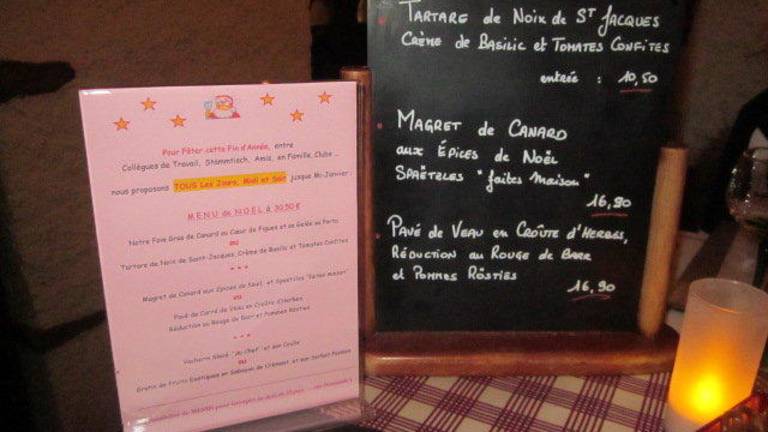 Pour Fêter cette Fin d'Année, entre
Collègues de Travail, Stammtisch, Amis, en Famille, Clubs ...
nous proposons TOUS Les Jours, Midi et Soir jusque Mi-Janvier
MENU de NOEL à 30,50 €
Notre Foie Gras de Canard au Cœur de Figues et sa Gelée au Porto
ou
Tartare de Noix de Saint-Jacques, Crème de Basilic et Tomates Confites
* * *
Magret de Canard aux Epices de Noël, et Spaetzles "faites maison"
ou
Pavé de Carré de Veau en Croûte d'Herbes
Réduction au Rouge de Barr et Pommes Rösties
* * *
Vacherin Glacé "du Chef" et son Coulis
ou
Gratin de Fruits Exotiques en Sabayon de Crémant, et son Sorbet Passion
TARTARE de NOIX de ST JACQUES
CRÈME de BASILIC et TOMATES CONFITES
entrée : 10,50
MAGRET de CANARD
aux ÉPICES de NOËL
SPAËTZLES "faites maison"
16,90
PAVÉ de VEAU en CROÛTE d'HERBES,
RÉDUCTION au ROUGE de BARR
et POMMES RÖSTIES
16,90